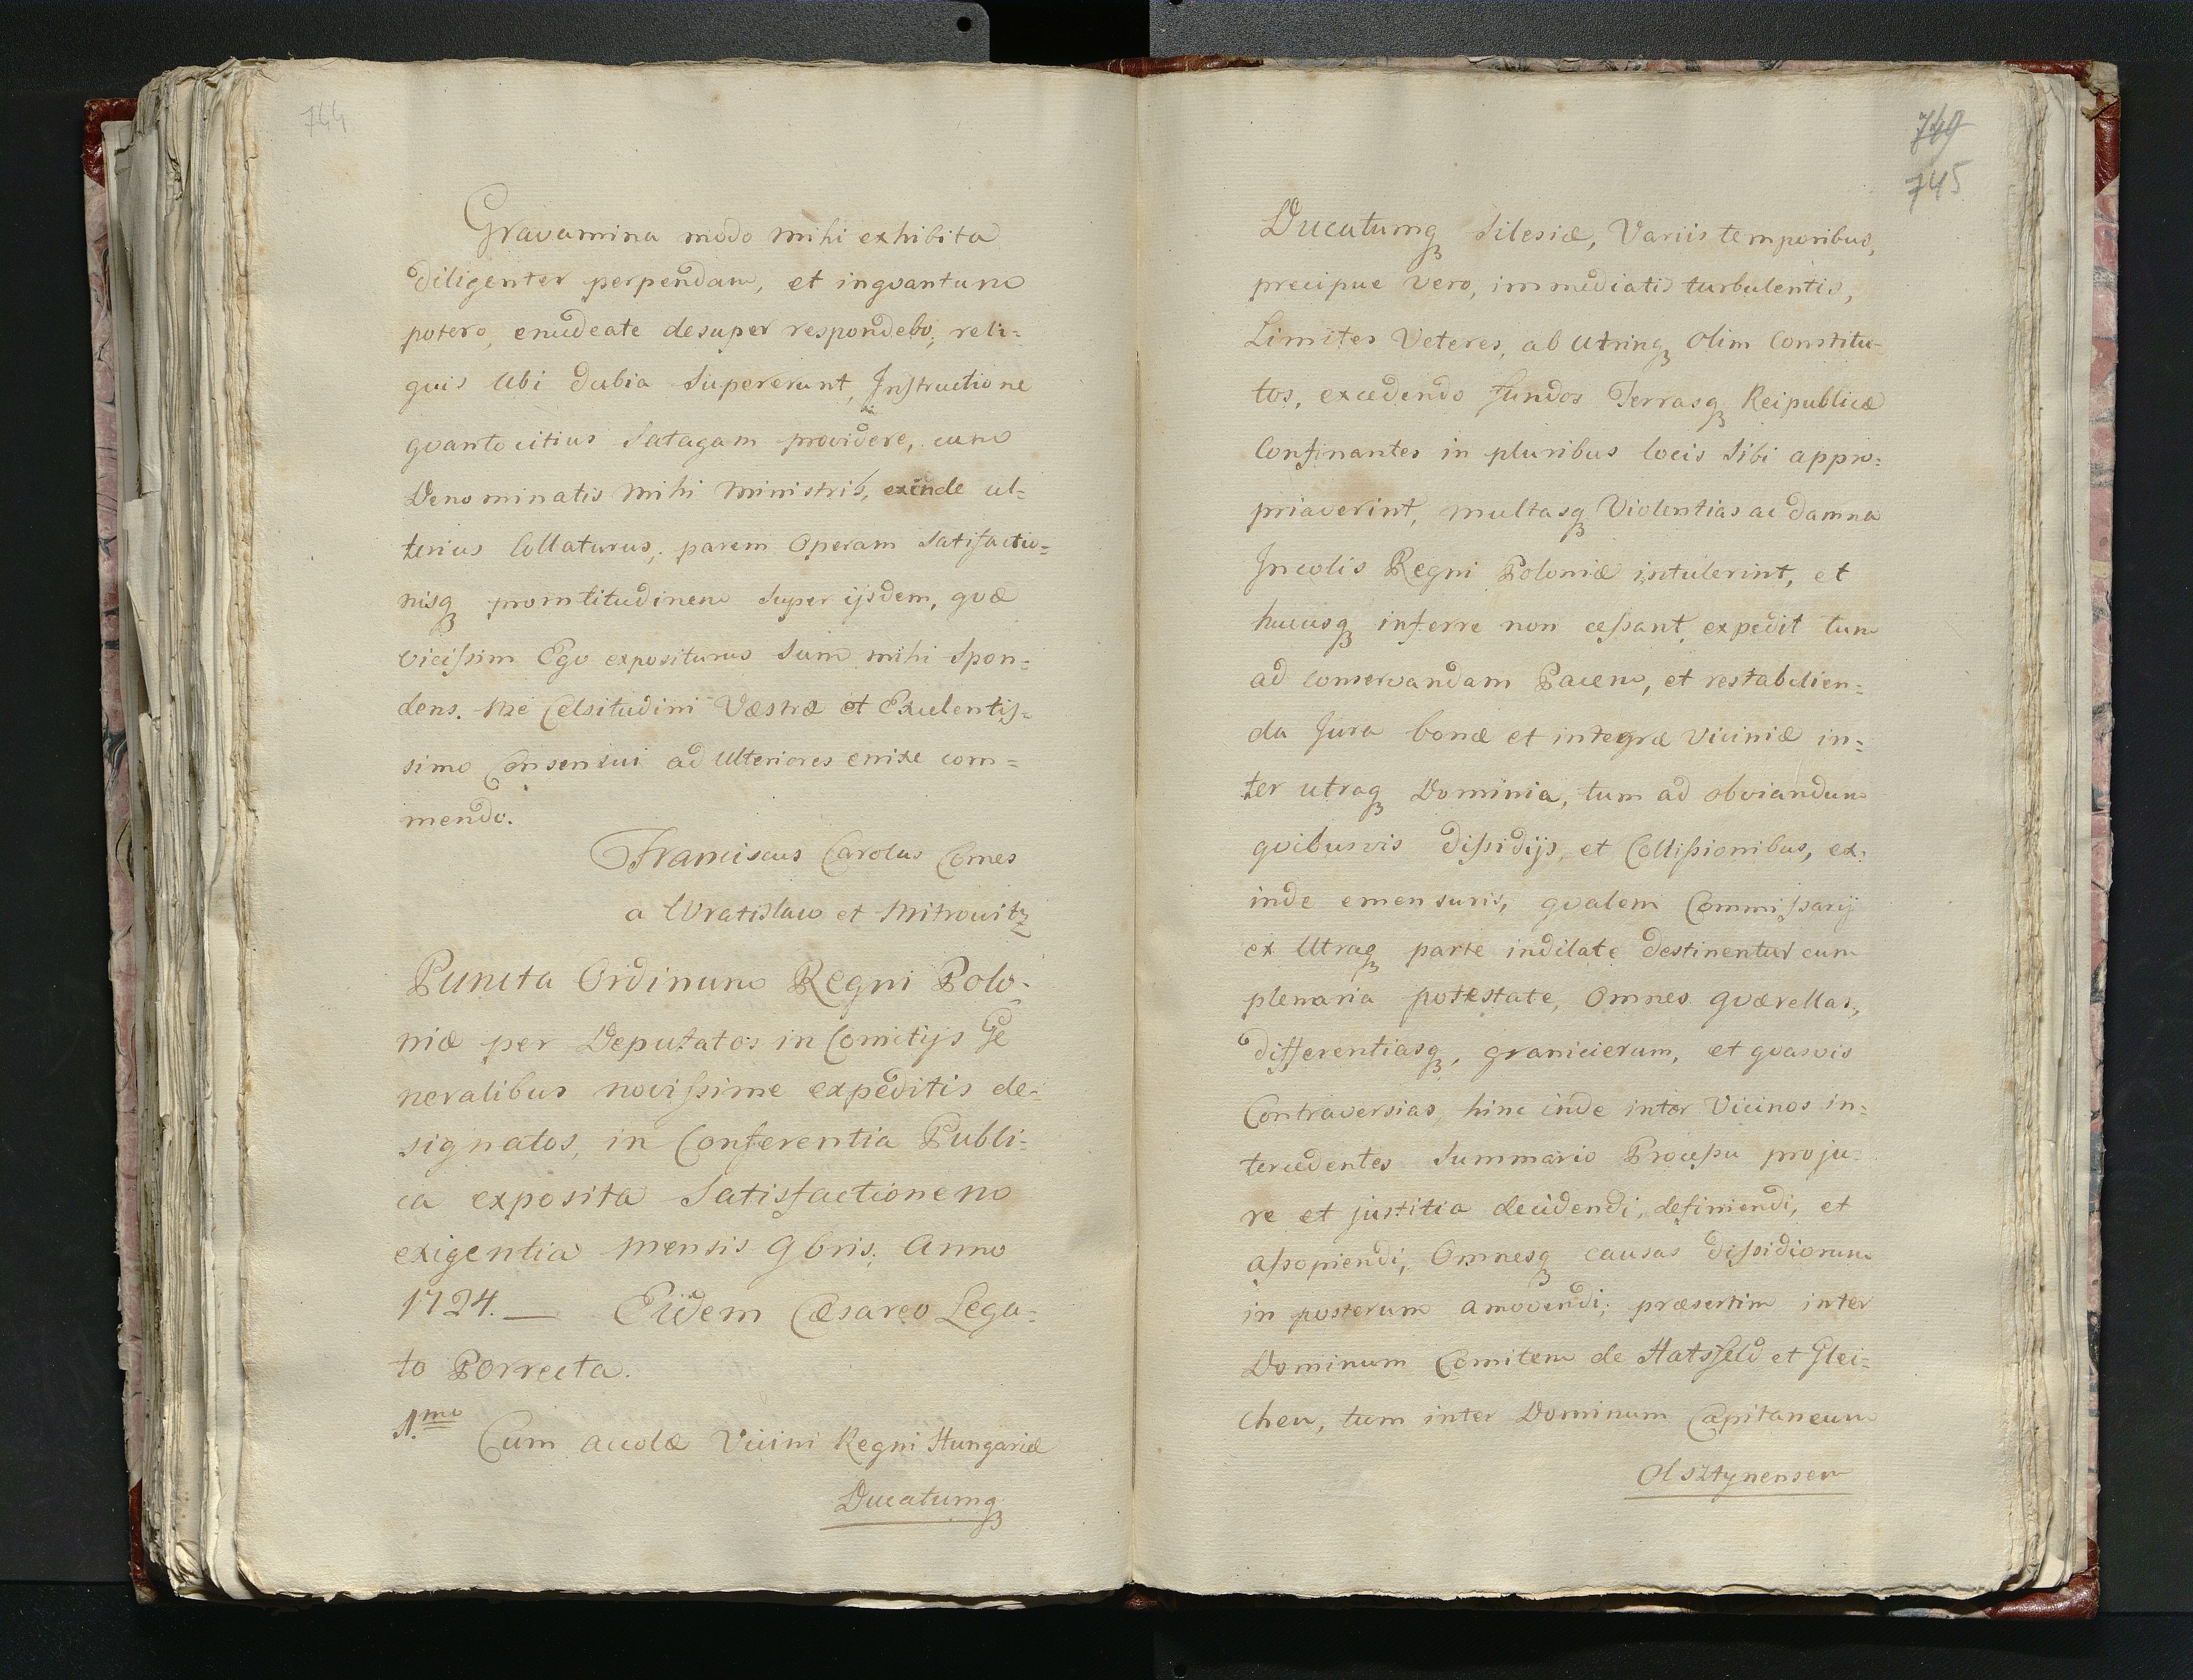 744
Gravamina modo mihi exhibita
diligenter perpendam, et inqvantum
potero, enudeate desuper respondebo, reli=
quis Ubi dubia Supererunt, Instructione
qvantocitius Satagam providere, cum
Denominatis Mihi Ministris, exinde ul=
terius Collaturus, parem Operam Satisfactio=
nisq promtitudinem Super ijsdem, qvæ
vicissim Ego expositurus Sum mihi Spon=
dens. Me Celsitudini Væstræ et Excelentis=
simo Consensui ad Ulteriores enixe com=
mendo.
Franciscus Carolus Comes
a Wratislaw et Mitrowitz
Puncta Ordinum Regni Polo=
niæ per Deputatos in Comitijs Ge
neralibus novissime expeditis de=
signatos, in Conferentia Publi=
ca exposita Satisfactionem
exigentia Mensis 9bris. Anno
1724. — Eidem Cæsareo Lega=
to Porrecta.
1.mo Cum accolæ Vicini Regni Hungariæ
Ducatumq
749
745
Ducatumq Silesiæ, Variis temporibus,
precipue Vero, immediatis turbulentis,
Limites Veteres, ab Utrinq Olim Constitu-
tos, excedendo fundos Terrasq Reipublicæ
Confinantes in pluribus locis Sibi appro=
priaverint, multasq Violentias ac damna
Incolis Regni Poloniæ intulerint, et
hucusq inferre non cessant, expedit tum
ad Conservandam Pacem, et restabilien=
da Jura bonæ et integræ Viciniæ in=
ter utraq Dominia, tum ad obviandum
qvibusvis dissidijs, et Collissionibus, ex=
inde emensuris, qvalem Commissarij
ex Utraq parte indilate destinentur cum
plenaria potestate, Omnes qværellas,
differentiasq, granicierum, et qvasvis
Contraversias, hinc inde inter Vicinos in=
tercedentes Summario Processu pro ju=
re et justitia decidendi, definiendi, et
assopiendi, Omnesq causas dissidiorum
in posterum amovendi; præsertim inter
Dominum Comitem de Hatsfeld et Glei=
chen, tum inter Dominum Capitaneum
Olsztynensem